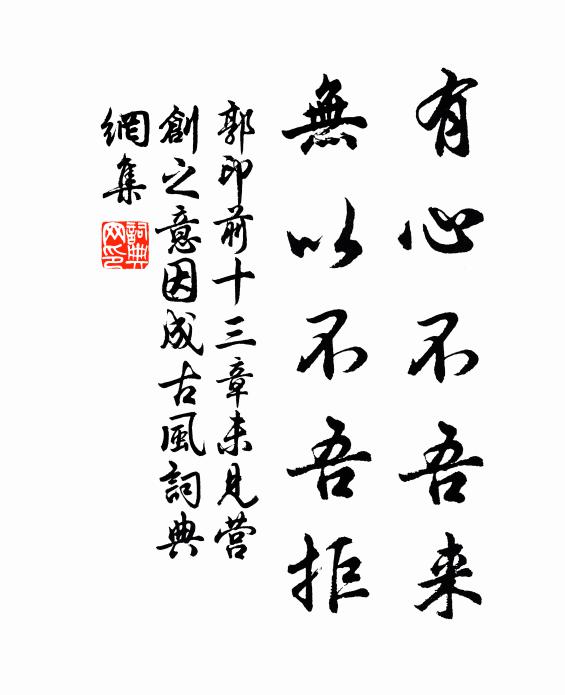 有心不吾来
無以不吾拒
郭印前十三章未見营
創之意因成古風詞典
網集
詞典
网印